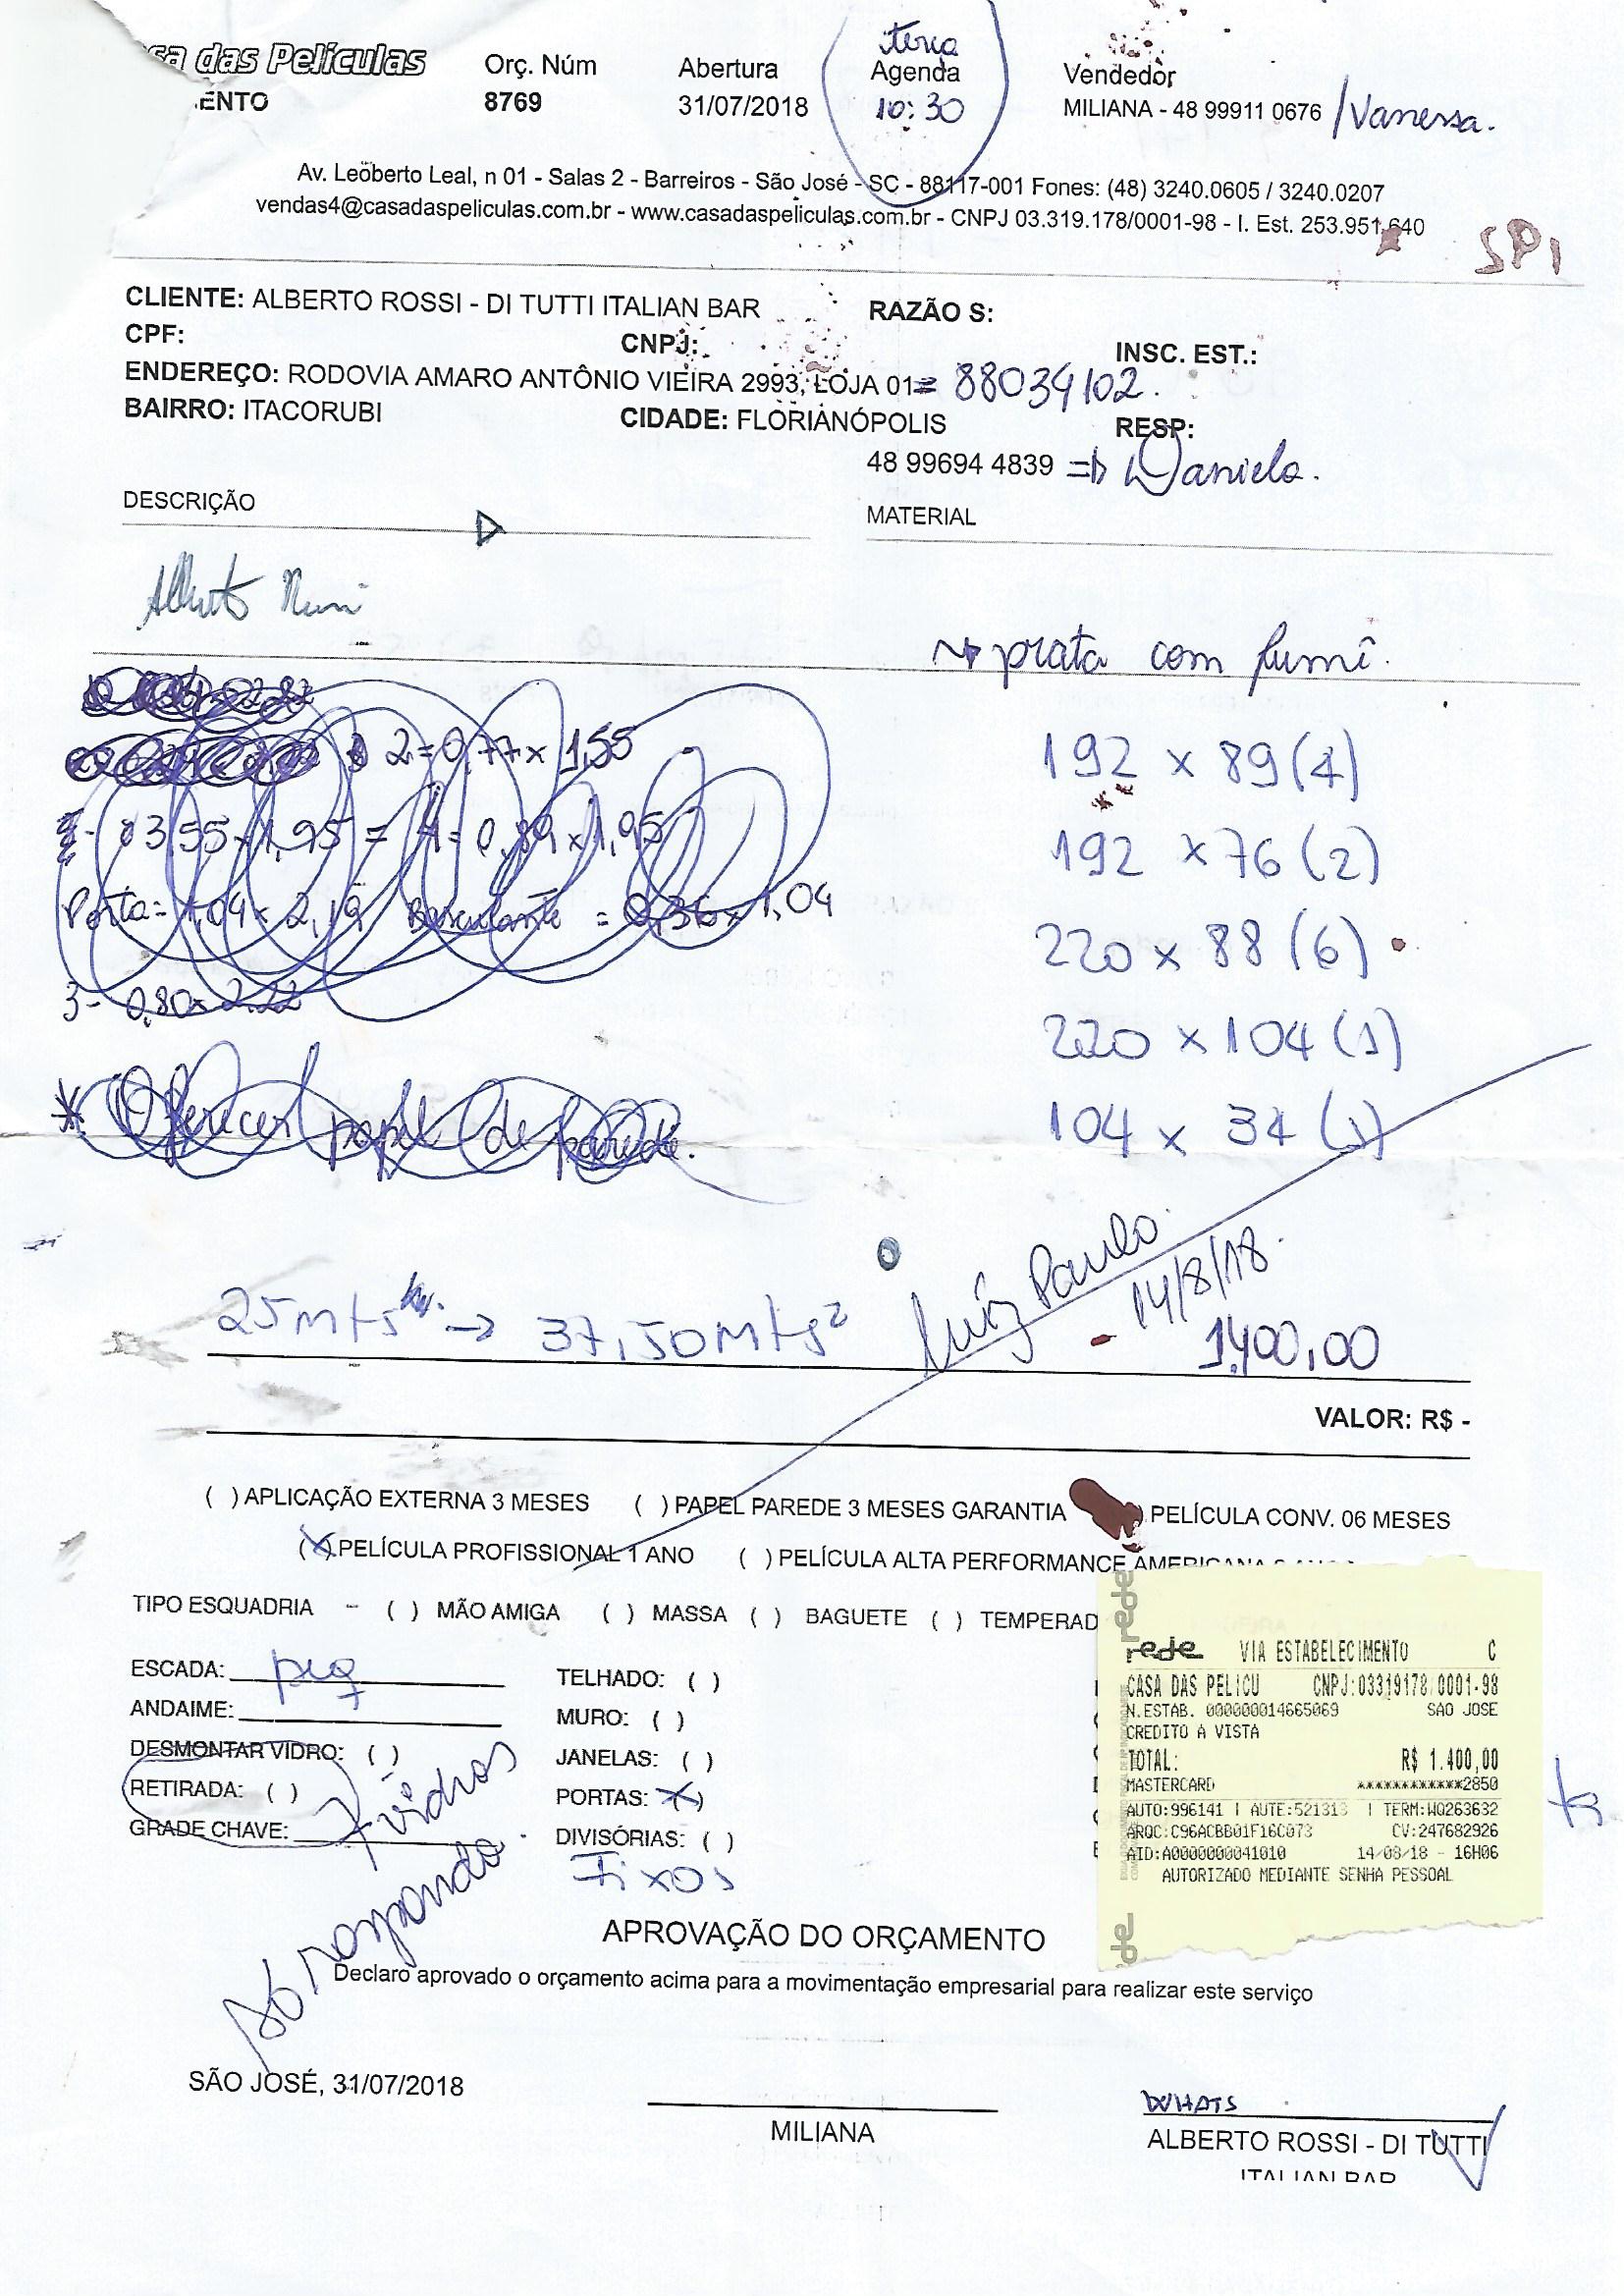 sa das Películas
ENTO
Orç. Núm
8769
Abertura
31/07/2018
terça
Agenda
10:30
Vendedor
MILIANA - 48 99911 0676 /Vanessa.
Av. Leoberto Leal, n 01 - Salas 2 - Barreiros - São José - SC - 88117-001 Fones: (48) 3240.0605 / 3240.0207
vendas4@casadaspeliculas.com.br - www.casadaspeliculas.com.br - CNPJ 03.319.178/0001-98 - I. Est. 253.951.640
SP1
CLIENTE: ALBERTO ROSSI - DI TUTTI ITALIAN BAR RAZÃO S:
CPF: CNPJ: INSC. EST.:
ENDEREÇO: RODOVIA AMARO ANTÔNIO VIEIRA 2993, LOJA 01 = 88034102.
BAIRRO: ITACORUBI CIDADE: FLORIANÓPOLIS RESP:
48 99694 4839 => Daniela.
DESCRIÇÃO MATERIAL
Alberto
prata com fumê.
2=0,77x 1,55
3,55x1,95 = 4=0,89x1,95
Porta= 1,04x2,19 Basculante = 0,36x1,04
3- 0,80x2,22
* Oferecer papel de parede.
192 x 89 (4)
192 x 76 (2)
220 x 88 (6)
220 x 104 (1)
104 x 34 (1)
25mts -> 37,50mts²
Luiz Paulo
14/8/18.
1.400,00
VALOR: R$ -
( ) APLICAÇÃO EXTERNA 3 MESES ( ) PAPEL PAREDE 3 MESES GARANTIA ) PELÍCULA CONV. 06 MESES
(X) PELÍCULA PROFISSIONAL 1 ANO ( ) PELÍCULA ALTA PERFORMANCE AMERICANA
TIPO ESQUADRIA - ( ) MÃO AMIGA ( ) MASSA ( ) BAGUETE ( ) TEMPERAD
ESCADA: peq
ANDAIME:
DESMONTAR VIDRO: ( )
RETIRADA: ( )
GRADE CHAVE:
7 vidros
só raspando.
TELHADO: ( )
MURO: ( )
JANELAS: ( )
PORTAS: (X)
DIVISÓRIAS: ( )
Fixos
rede
rede VIA ESTABELECIMENTO C
CASA DAS PELICU CNPJ:03319178/0001-98
N.ESTAB. 000000014665069 SAO JOSE
CREDITO A VISTA
TOTAL: R$ 1.400,00
MASTERCARD ************2850
AUTO:996141 | AUTE:521313 | TERM:WQ263632
ARQC:C96ACBB01F16C073 CV:247682926
AID:A0000000041010 14/08/18 - 16H06
AUTORIZADO MEDIANTE SENHA PESSOAL
de
ts
APROVAÇÃO DO ORÇAMENTO
Declaro aprovado o orçamento acima para a movimentação empresarial para realizar este serviço
SÃO JOSÉ, 31/07/2018
MILIANA
WHATS
ALBERTO ROSSI - DI TUTTI
ITALIAN BAR